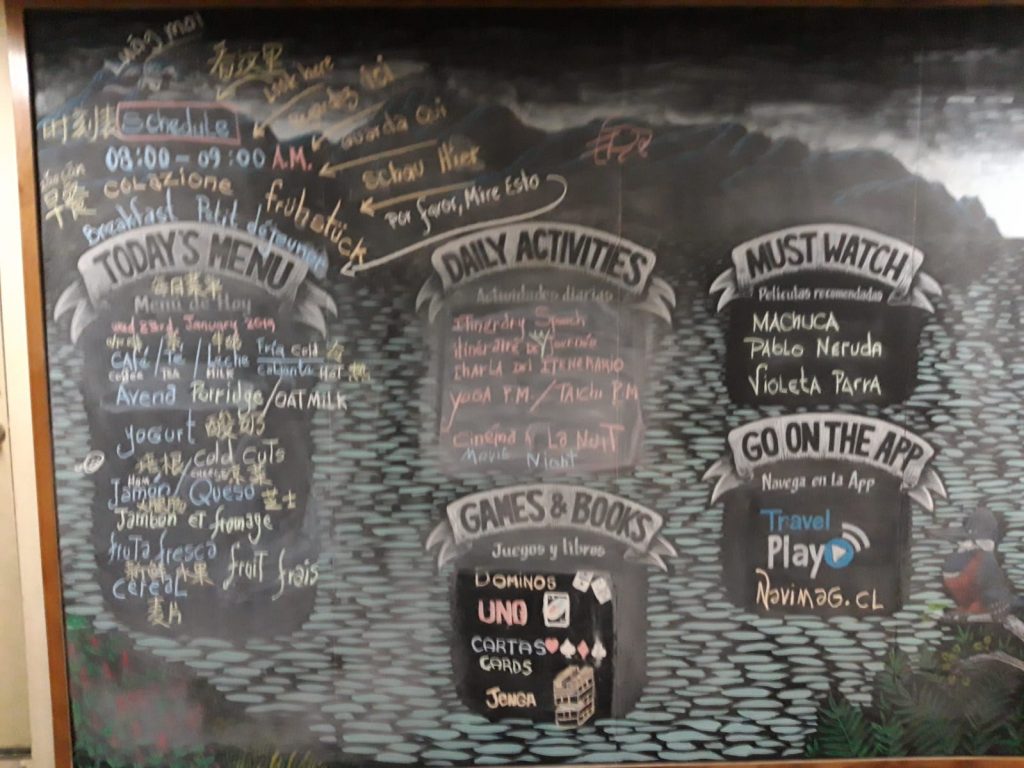 看这里
Look here
guarda Qui
Schau Hier
Por favor, Mire Esto
时刻表 Schedule
08:00 - 09:00 A.M.
早餐 COLAZIONE
frühstück
Breakfast Petit déjeuner
TODAY'S MENU
Menú de Hoy
Wed 23rd January 2019
Café / Té / Leche Fría Cold
COFFEE TEA MILK HOT
Avena Porridge / OATMILK
yogurt 酸奶
Cold Cuts
Ham
Jamón / Queso 芝士
Jambon et fromage
fruta fresca
新鲜水果 fruit frais
CEREAL
麦片
DAILY ACTIVITIES
Actividades diarias
Itinerary Speech
CHARLA DEL ITENERARIO
YOGA P.M / TAICHI P.M
Cinéma La NUIT
Movie Night
GAMES & BOOKS
Juegos y libros
DOMINOS
UNO
CARTAS
CARDS
JENGA
MUST WATCH
Películas recomendadas
MACHUCA
PABLO NERUDA
VIOLETA PARRA
GO ON THE APP
Navega en la App
Travel
Play
NAVIMAG.CL